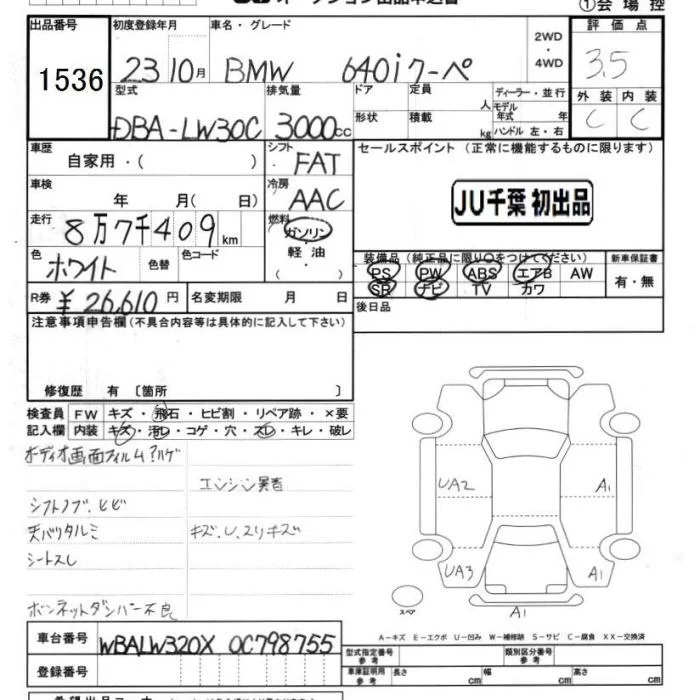 ①会場控
出品番号
1536
初度登録年月
車名・グレード
23 10月
BMW 640iクーペ
2WD
・
4WD
評価点
3.5
外装 内装
C C
型式
DBA-LW30C
排気量
3000cc
ドア
形状
定員
人
積載
kg
ディーラー・並行
モデル
年式 年
ハンドル 左・右
車歴
自家用・( )
シフト
FAT
車検
年 月( 日)
冷房
AAC
走行
8万7千409km
燃料
ガソリン
・
軽油
・
( )
色
ホワイト
色替
色コード
R券 ¥26,610円
名変期限 月 日
セールスポイント (正常に機能するものに限ります)
JU千葉 初出品
装備品(純正品に限り○をつけてください)
PS PW ABS エアB AW
SR ナビ TV カワ
新車保証書
有・無
後日品
注意事項申告欄(不具合内容等は具体的に記入して下さい)
修復歴 有 〔箇所 〕
検査員 FW キズ・飛石・ヒビ割・リペア跡・×要
記入欄 内装 キズ・汚レ・コゲ・穴・スレ・キレ・破レ
画面フィルムハゲ
エンジン異音
シフトノブ、ヒビ
天バリタルミ
キズ、U、スリキズ
シートスレ
ボンネットダンパー不良
UA2
A1
UA3
A1
A1
スペア
A-キズ E-エクボ U-凹み W-補修跡 S-サビ C-腐食 XX-交換済
車台番号 WBALW320X 0C798755
登録番号
型式指定番号
参考
類別区分番号
参考
車庫証明用
参考
長さ cm
幅 cm
高さ cm